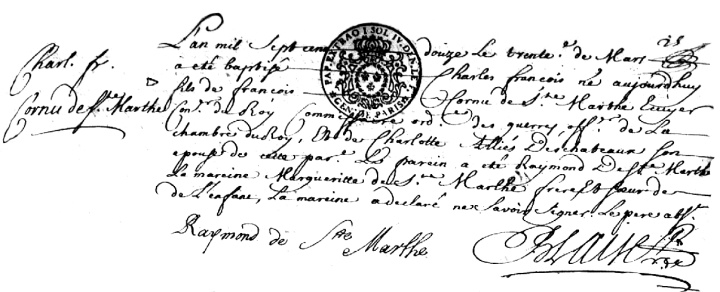 Charl. fr.
Cornu de Ste Marthe
L'an mil Sept cent douze Le trente.e de Mars
a été baptisé Charles francois né aujourdhuy
fils de francois Cornu de Ste Marthe Ecuyer
Con.er du Roy Commissaire ord.re des guerres off.er de La
Chambre du Roy, Et de Charlotte Alliés Deschateaux Son
epouse de cette par.se Le parein a été Raymond De Ste Marthe
La mareine Margueritte de Ste Marthe frere et soeur de
De L'enfant, La mareine a declaré ne Savoir Signer. Le pere abs.t
Raymond de Ste Marthe